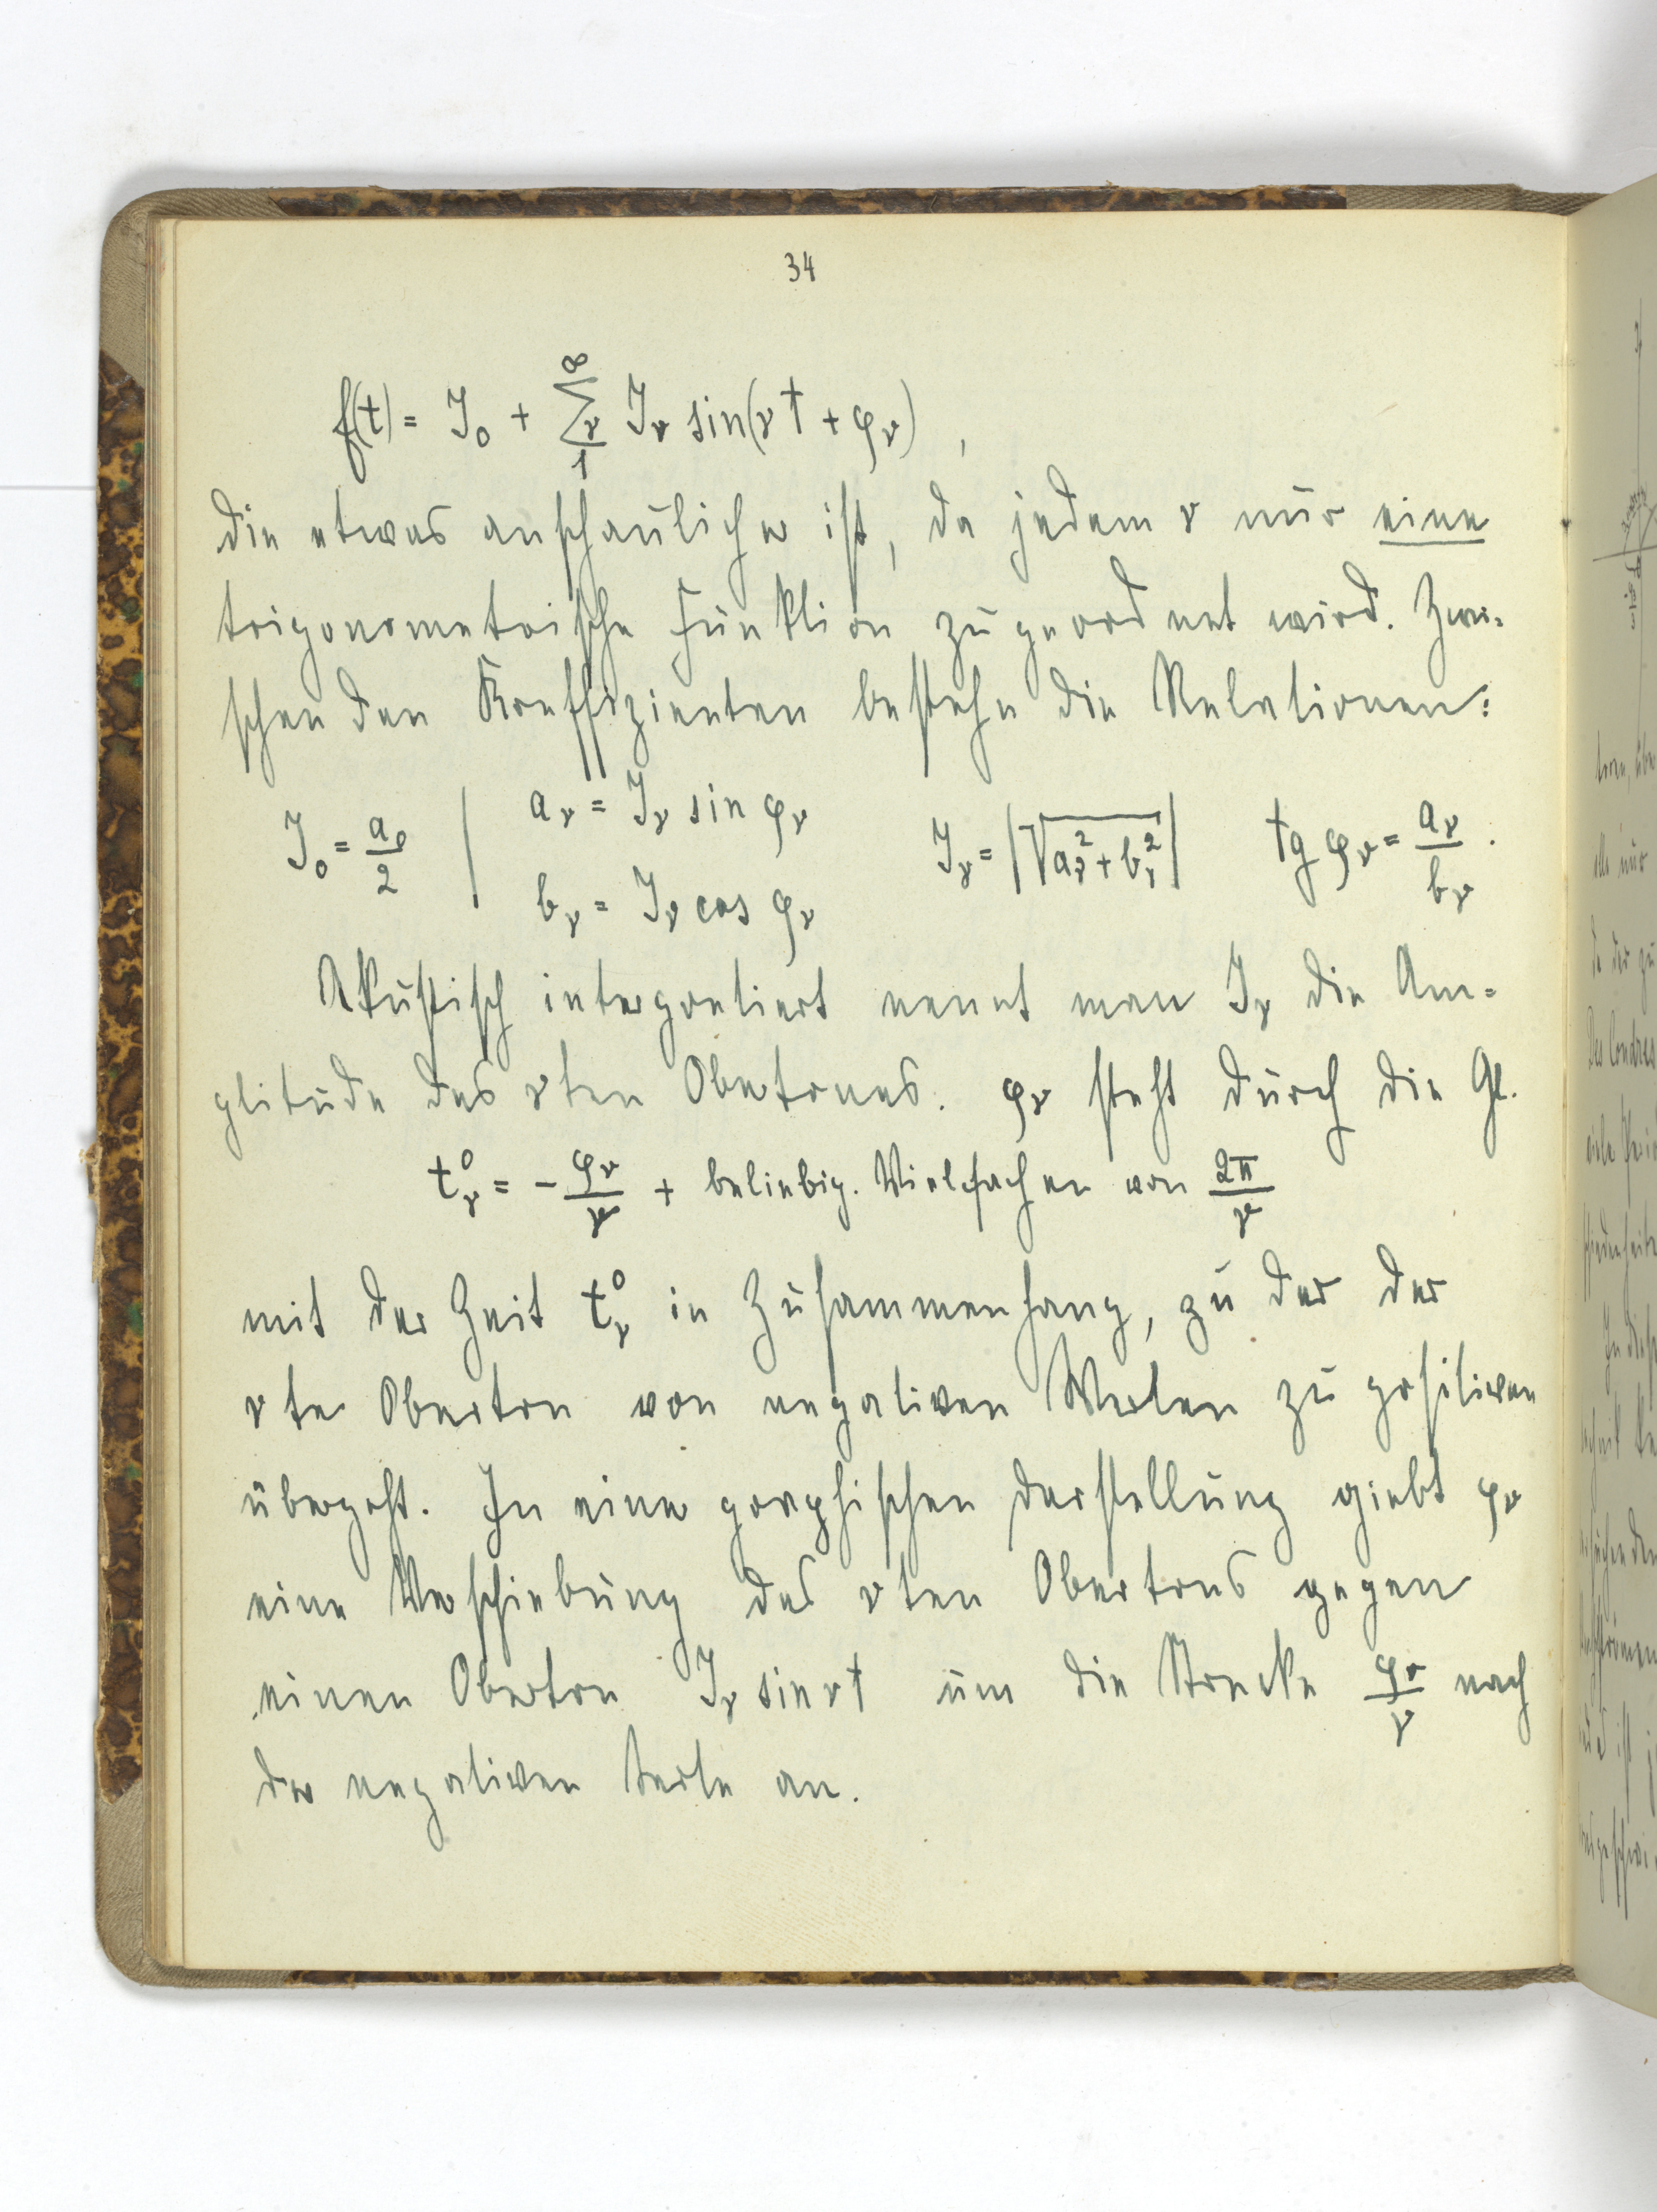 34
f(t) = J₀ + ∑ν₁^∞ J_ν sin(νt + φ_ν) ,
die etwas anschaulicher ist, da jedem ν nur eine
trigonometrische Funktion zugeordnet wird. Zwi=
schen den Koeffizienten bestehn die Relationen:
J₀ = a₀/2 | a_ν = J_ν sin φ_ν J_ν = |√(a_ν² + b_ν²)| tg φ_ν = a_ν/b_ν .
b_ν = J_ν cos φ_ν
Akustisch interpretiert nennt man J_ν die Am=
plitude des νten Obertones. φ_ν steht durch die Gl.
t_ν⁰ = - φ_ν/ν + beliebig. Vielfachen von 2π/ν
mit der Zeit t_ν⁰ in Zusammenhang, zu der der
νte Oberton von negativen Werten zu positiven
übergeht. In einer graphischen Darstellung giebt φ_ν
eine Verschiebung des νten Obertons gegen
einen Oberton J_ν sin νt um die Strecke φ_ν/ν nach
der negativen Seite an.